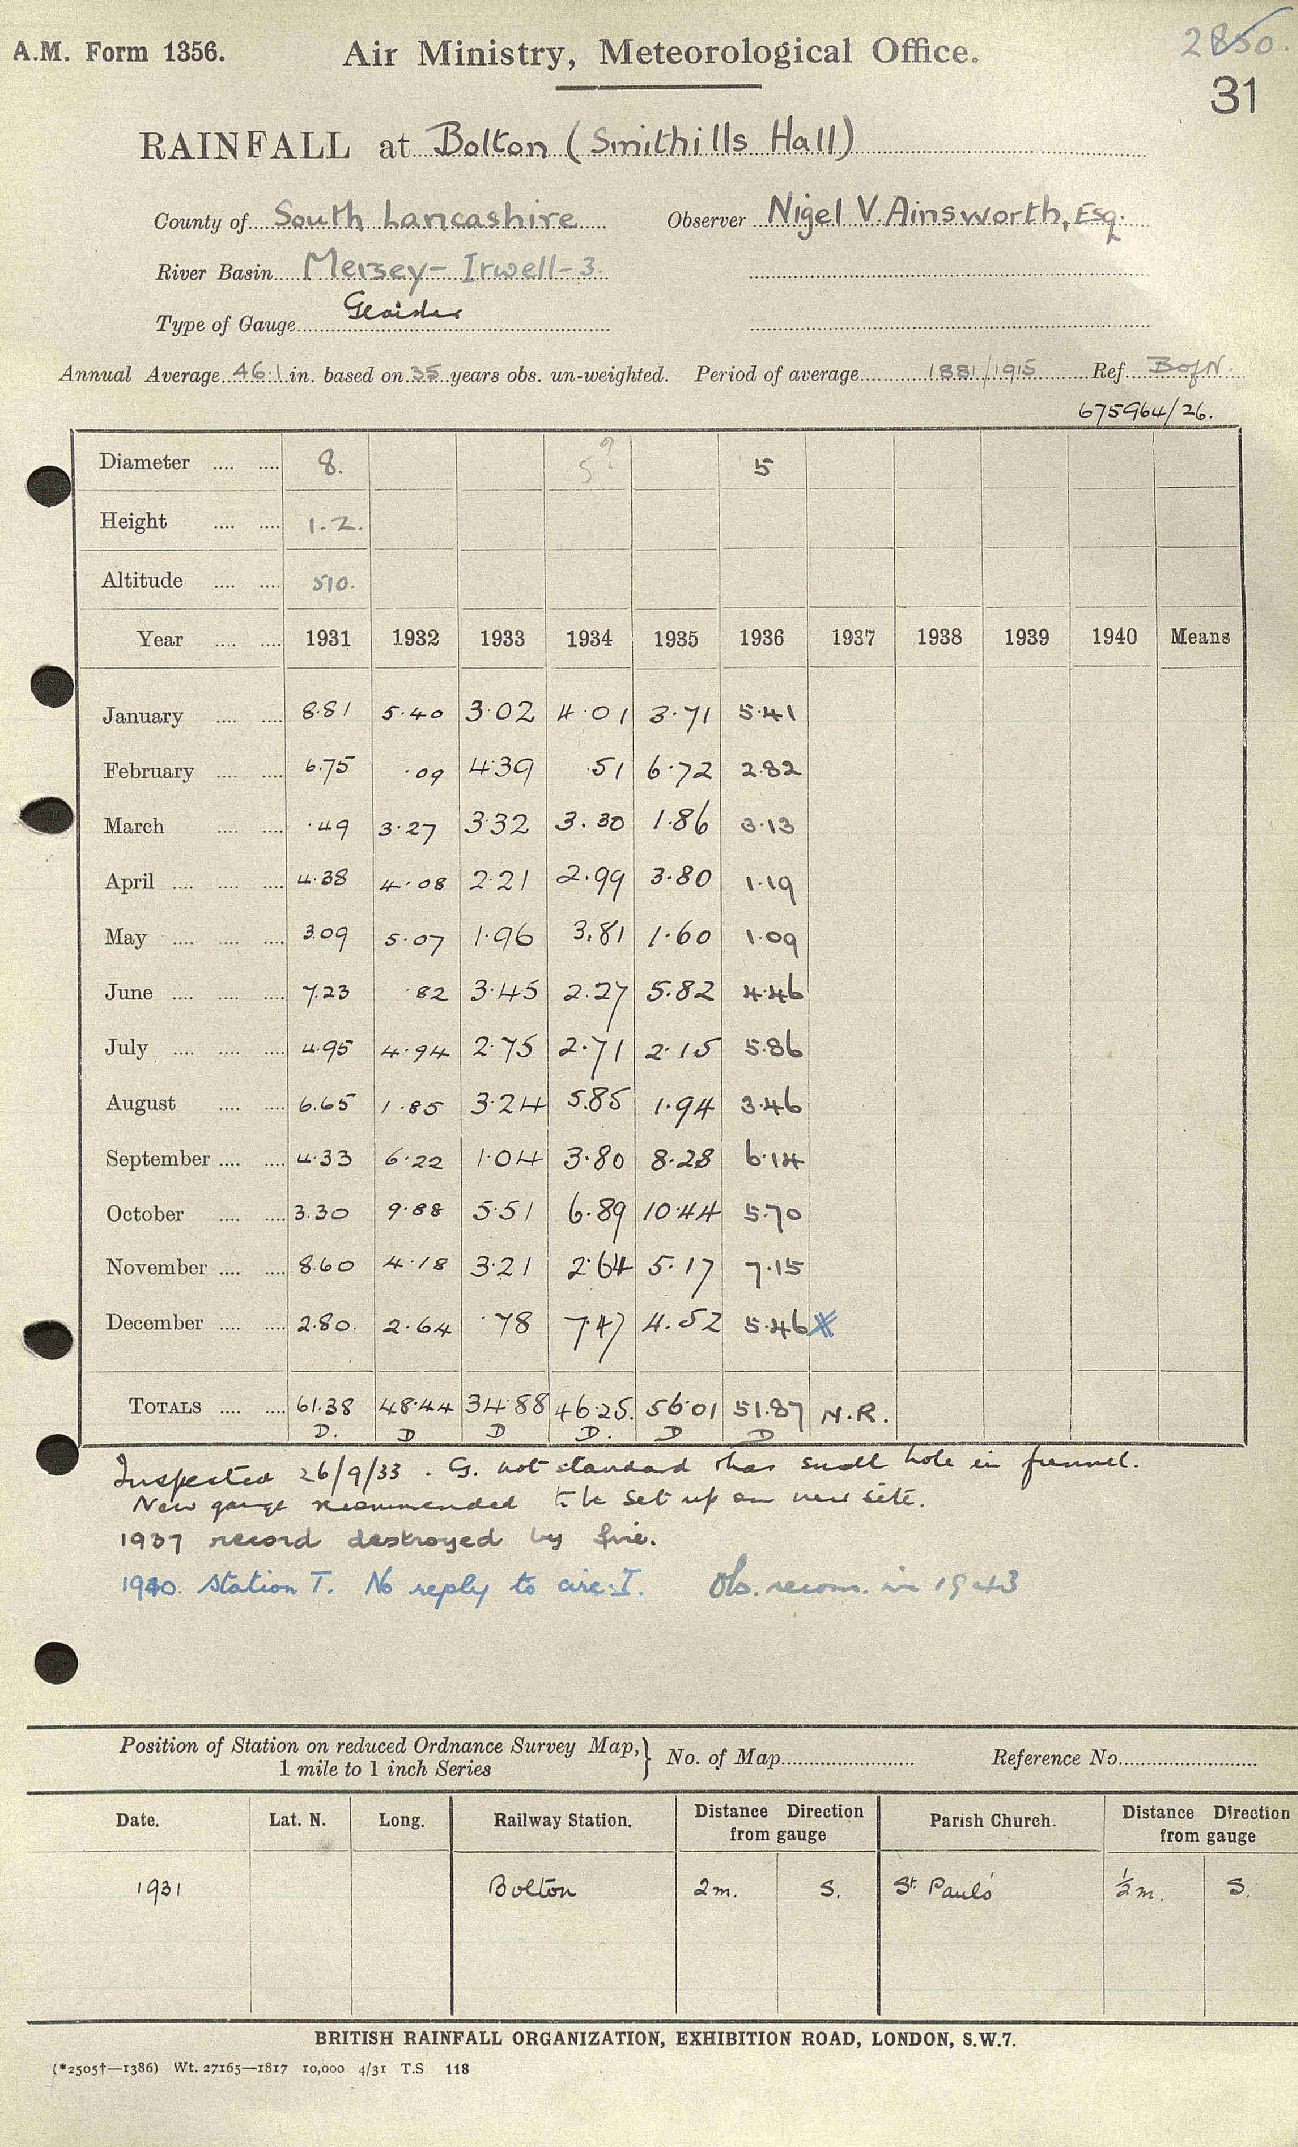 A.M. Form 1356. Air Ministry, Meteorological Office. 2850.
31
RAINFALL at Bolton (Smithills Hall)
County of South Lancashire Observer Nigel V. Ainsworth, Esq.
River Basin Mersey - Irwell - 3
Type of Gauge Glaisher
Annual Average 46.1 in. based on 35 years obs. un-weighted. Period of average 1881/1915 Ref BofN
675964/26.
Diameter 8. 5? 5
Height 1.2.
Altitude 510.
Year 1931 1932 1933 1934 1935 1936 1937 1938 1939 1940 Means
January 8.81 5.40 3.02 4.01 3.71 5.41
February 6.75 .09 4.39 .51 6.72 2.82
March .49 3.27 3.32 3.30 1.86 3.13
April 4.38 4.08 2.21 2.99 3.80 1.19
May 3.09 5.07 1.96 3.81 1.60 1.09
June 7.23 .82 3.45 2.27 5.82 4.46
July 4.95 4.94 2.75 2.71 2.15 5.86
August 6.65 1.85 3.24 5.85 1.94 3.46
September 4.33 6.22 1.04 3.80 8.28 6.14
October 3.30 9.88 5.51 6.89 10.44 5.70
November 8.60 4.18 3.21 2.64 5.17 7.15
December 2.80 2.64 .78 7.47 4.52 5.46 X
TOTALS 61.38 48.44 34.88 46.25. 56.01 51.87 N.R.
D. D D D. D D
Inspected 26/9/33. G. not standard & has small hole in funnel.
New gauge recommended to be set up on new site.
1937 record destroyed by fire.
1940. Station T. No reply to circ: I. Obs. recom. in 1943
Position of Station on reduced Ordnance Survey Map, } No. of Map Reference No.
1 mile to 1 inch Series
Date. Lat. N. Long. Railway Station. Distance Direction from gauge Parish Church. Distance Direction from gauge
1931 Bolton 2 m. S. St. Paul's ½ m. S.
BRITISH RAINFALL ORGANIZATION, EXHIBITION ROAD, LONDON, S.W.7.
(*2505†—1386) Wt. 27165—1817 10,000 4/31 T.S 118